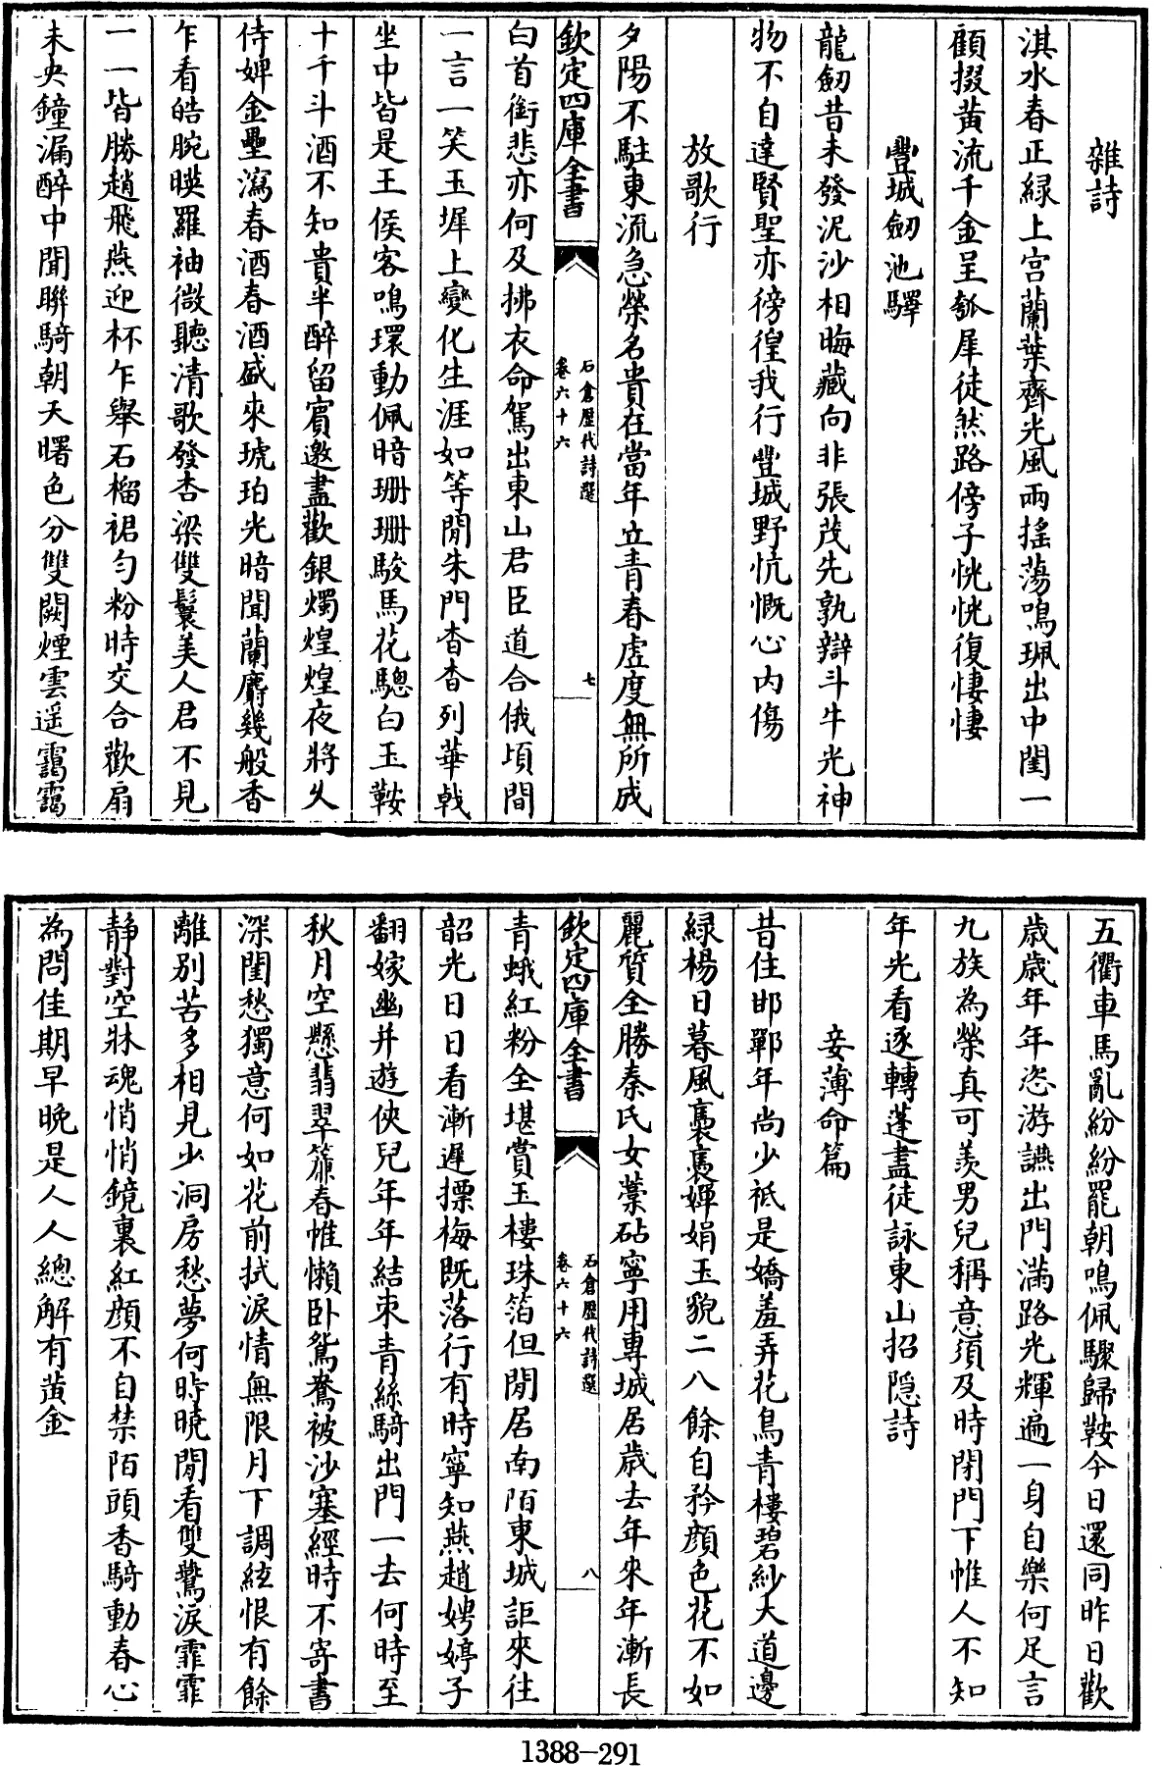 雜詩
淇水春正綠上宫蘭葉齊光風兩搖蕩鳴珮出中閨一
顧掇黃流千金呈瓠犀徒然路傍子恍恍復悽悽
豐城劒池驛
龍劒昔未發泥沙相晦藏向非張茂先孰辯斗牛光神
物不自達賢聖亦徬徨我行豐城野忼慨心内傷
放歌行
夕陽不駐東流急榮名貴在當年立青春虚度無所成
白首銜悲亦何及拂衣命駕出東山君臣道合俄頃間
一言一笑玉墀上變化生涯如等閒朱門杳杳列華戟
坐中皆是王侯客鳴環動佩暗珊珊駿馬花驄白玉鞍
十千斗酒不知貴半醉留賓邀盡歡銀燭煌煌夜將久
侍婢金罍瀉春酒春酒盛來琥珀光暗聞蘭麝幾般香
乍看皓腕暎羅袖微聽清歌發杏梁雙鬟美人君不見
一一皆勝趙飛燕迎杯乍舉石榴裙勻粉時交合歡扇
未央鐘漏醉中聞聯騎朝天曙色分雙闕煙雲遥靄靄
欽定四庫全書
石倉歷代詩選
卷六十六
七
五衢車馬亂紛紛罷朝鳴佩驟歸鞍今日還同昨日歡
歲歲年年恣游讌出門滿路光輝遍一身自樂何足言
九族為榮真可羡男兒稱意須及時閉門下帷人不知
年光看逐轉蓬盡徒詠東山招隐詩
妾薄命篇
昔住邯鄲年尚少祗是嬌羞弄花鳥青樓碧紗大道邊
綠楊日暮風裊裊嬋娟玉貌二八餘自矜顔色花不如
麗質全勝秦氏女藁砧寧用專城居歲去年來年漸長
青蛾紅粉全堪賞玉樓珠箔但閒居南陌東城詎來往
韶光日日看漸遲摽梅既落行有時寧知燕趙娉婷子
翻嫁幽并遊俠兒年年結束青絲騎出門一去何時至
秋月空懸翡翠簾春帷懶卧鴛鴦被沙塞經時不寄書
深閨愁獨意何如花前拭淚情無限月下調絃恨有餘
離别苦多相見少洞房愁夢何時曉閒看雙鷖淚霏霏
静對空牀魂悄悄鏡裏紅顔不自禁陌頭香騎動春心
為問佳期早晚是人人總解有黃金
欽定四庫全書
石倉歷代詩選
卷六十六
八
1388-291